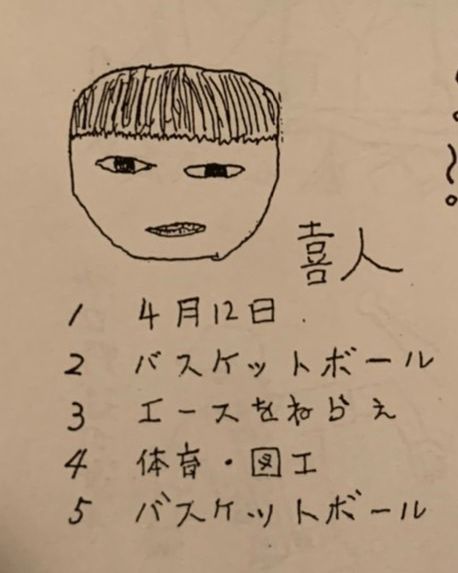 喜人
1 4月12日
2 バスケットボール
3 エースをねらえ
4 体育・図工
5 バスケットボール